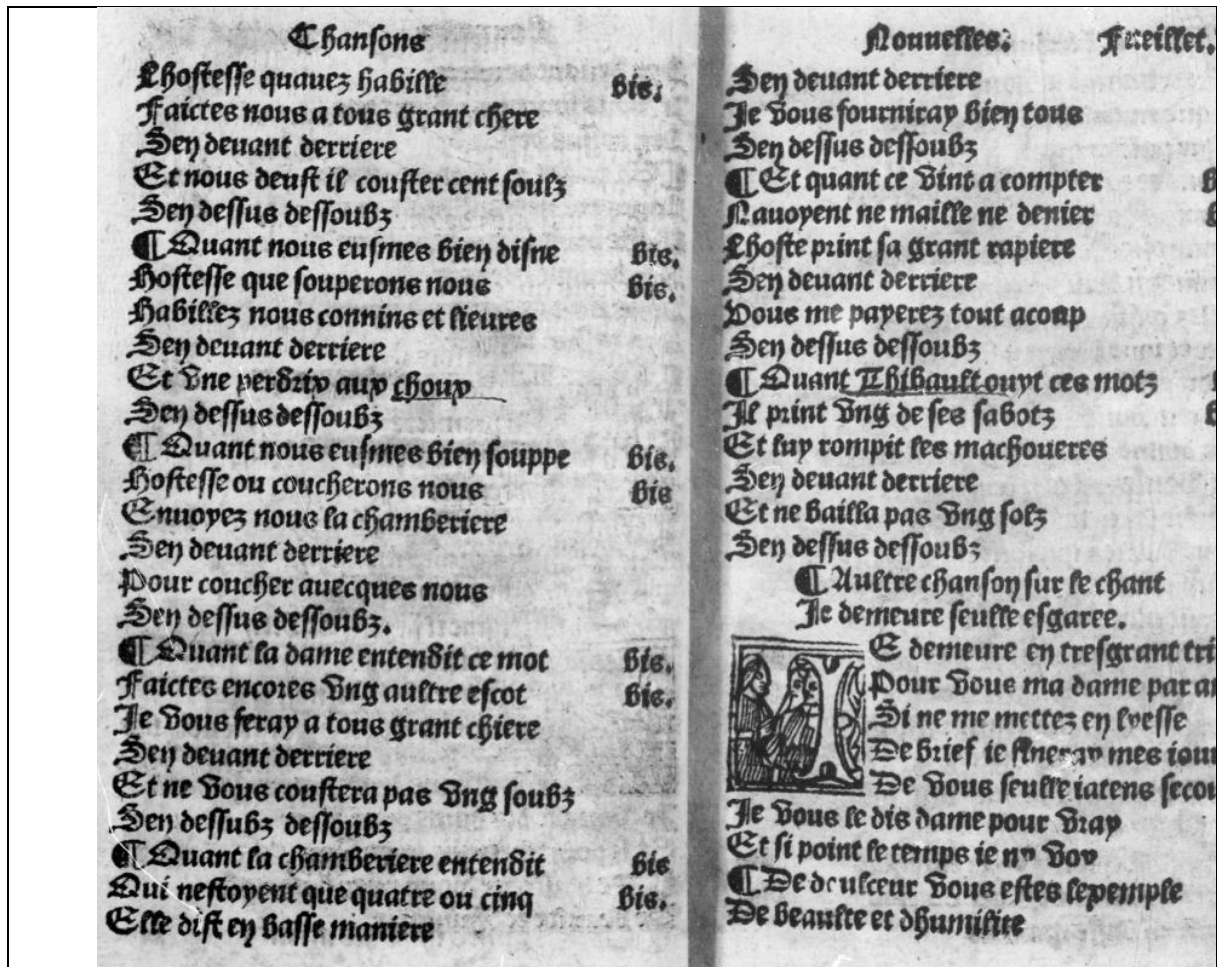 Chansons
Lhostesse quauez habille bis.
Faictes nous a tous grant chere
Sen deuant derriere
Et nous deust il couster cent soulz
Sen dessus dessoubz
¶ Quant nous eusmes bien disne bis.
Hostesse que souperons nous bis.
Habillez nous connins et lieures
Sen deuant derriere
Et vne perdrix aux choux
Sen dessus dessoubz
¶ Quant nous eusmes bien souppe bis.
Hostesse ou coucherons nous bis
Enuoyez nous la chamberiere
Sen deuant derriere
Pour coucher auecques nous
Sen dessus dessoubz.
¶ Quant la dame entendit ce mot bis.
Faictes encores vng aultre escot bis.
Je vous feray a tous grant chiere
Sen deuant derriere
Et ne vous coustera pas vng soubz
Sen dessubz dessoubz
¶ Quant la chamberiere entendit bis
Qui nestoyent que quatre ou cinq bis.
Elle dist en basse maniere
Nouuelles. Fueillet.
Sen deuant derriere
Je vous fourniray bien tous
Sen dessus dessoubz
¶ Et quant ce vint a compter
Nauoyent ne maille ne denier
Lhoste print sa grant rapiere
Sen deuant derriere
Vous me payerez tout acoup
Sen dessus dessoubz
¶ Quant Thibault ouyt ces motz
Il print vng de ses sabotz
Et luy rompit les machoueres
Sen deuant derriere
Et ne bailla pas vng solz
Sen dessus dessoubz
¶ Aultre chanson sur le chant
Je demeure seulle esgaree.
IE demeure en tresgrant tri
Pour vous ma dame par
Si ne me mettez en lyesse
De brief ie fineray mes iour
De vous seulle iatens secou
Je vous le dis dame pour vray
Et si point le temps ie ny voy
¶ De doulceur vous estes lexemple
De beaulte et dhumilite